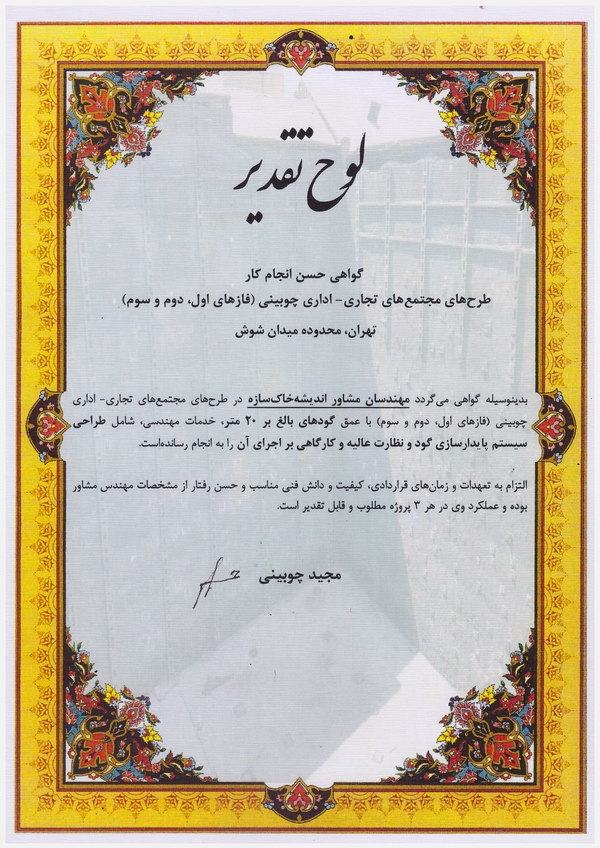 لوح تقدیر
گواهی حسن انجام کار
طرح‌های مجتمع‌های تجاری- اداری چوبینی (فازهای اول، دوم و سوم)
تهران، محدوده میدان شوش
بدینوسیله گواهی می‌گردد مهندسان مشاور اندیشه‌خاک‌سازه در طرح‌های مجتمع‌های تجاری- اداری
چوبینی (فازهای اول، دوم و سوم) با عمق گودهای بالغ بر ۲۰ متر، خدمات مهندسی، شامل طراحی
سیستم پایدارسازی گود و نظارت عالیه و کارگاهی بر اجرای آن را به انجام رسانده‌است.
التزام به تعهدات و زمان‌های قراردادی، کیفیت و دانش فنی مناسب و حسن رفتار از مشخصات مهندس مشاور
بوده و عملکرد وی در هر ۳ پروژه مطلوب و قابل تقدیر است.
مجید چوبینی